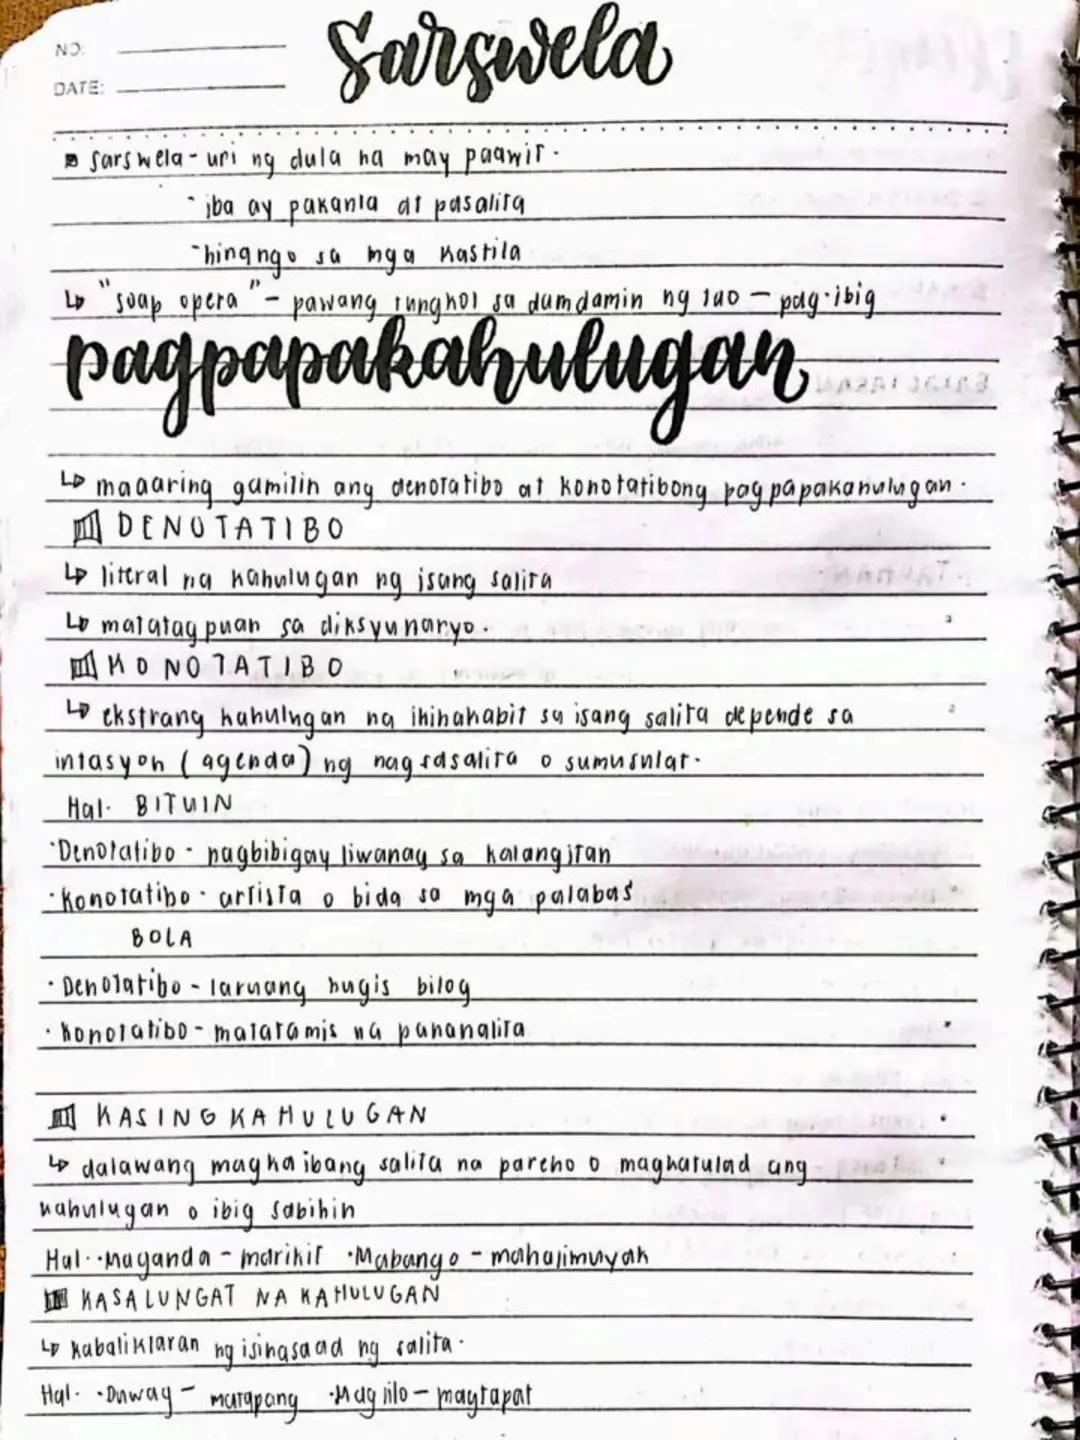 NO:
DATE:
Sarswela
sarswela - uri ng dula na may paawit.
- iba ay pakanta at pasalita
- hinango sa mga kastila
↳ "soap opera" - pawang tungkol sa damdamin ng tao - pag-ibig
pagpapakahulugan
↳ maaaring gamitin ang denotatibo at konotatibong pagpapakahulugan.
DENOTATIBO
↳ literal na kahulugan ng isang salita
↳ matatagpuan sa diksyunaryo.
KONOTATIBO
↳ ekstrang kahulugan na ikinakabit sa isang salita depende sa
intasyon (agenda) ng nagsasalita o sumusulat.
Hal. BITUIN
·Denotatibo - nagbibigay liwanag sa kalangitan
·Konotatibo - artista o bida sa mga palabas
BOLA
·Denotatibo - laruang hugis bilog
·konotatibo - matatamis na pananalita
KASINGKAHULUGAN
↳ dalawang magkaibang salita na pareho o magkatulad ang
kahulugan o ibig sabihin
Hal. ·Maganda - marikit ·Mabango - mahalimuyak
KASALUNGAT NA KAHULUGAN
↳ kabaliktaran ng isinasaad ng salita.
Hal. ·Duwag - matapang ·Maglilo - magtapat